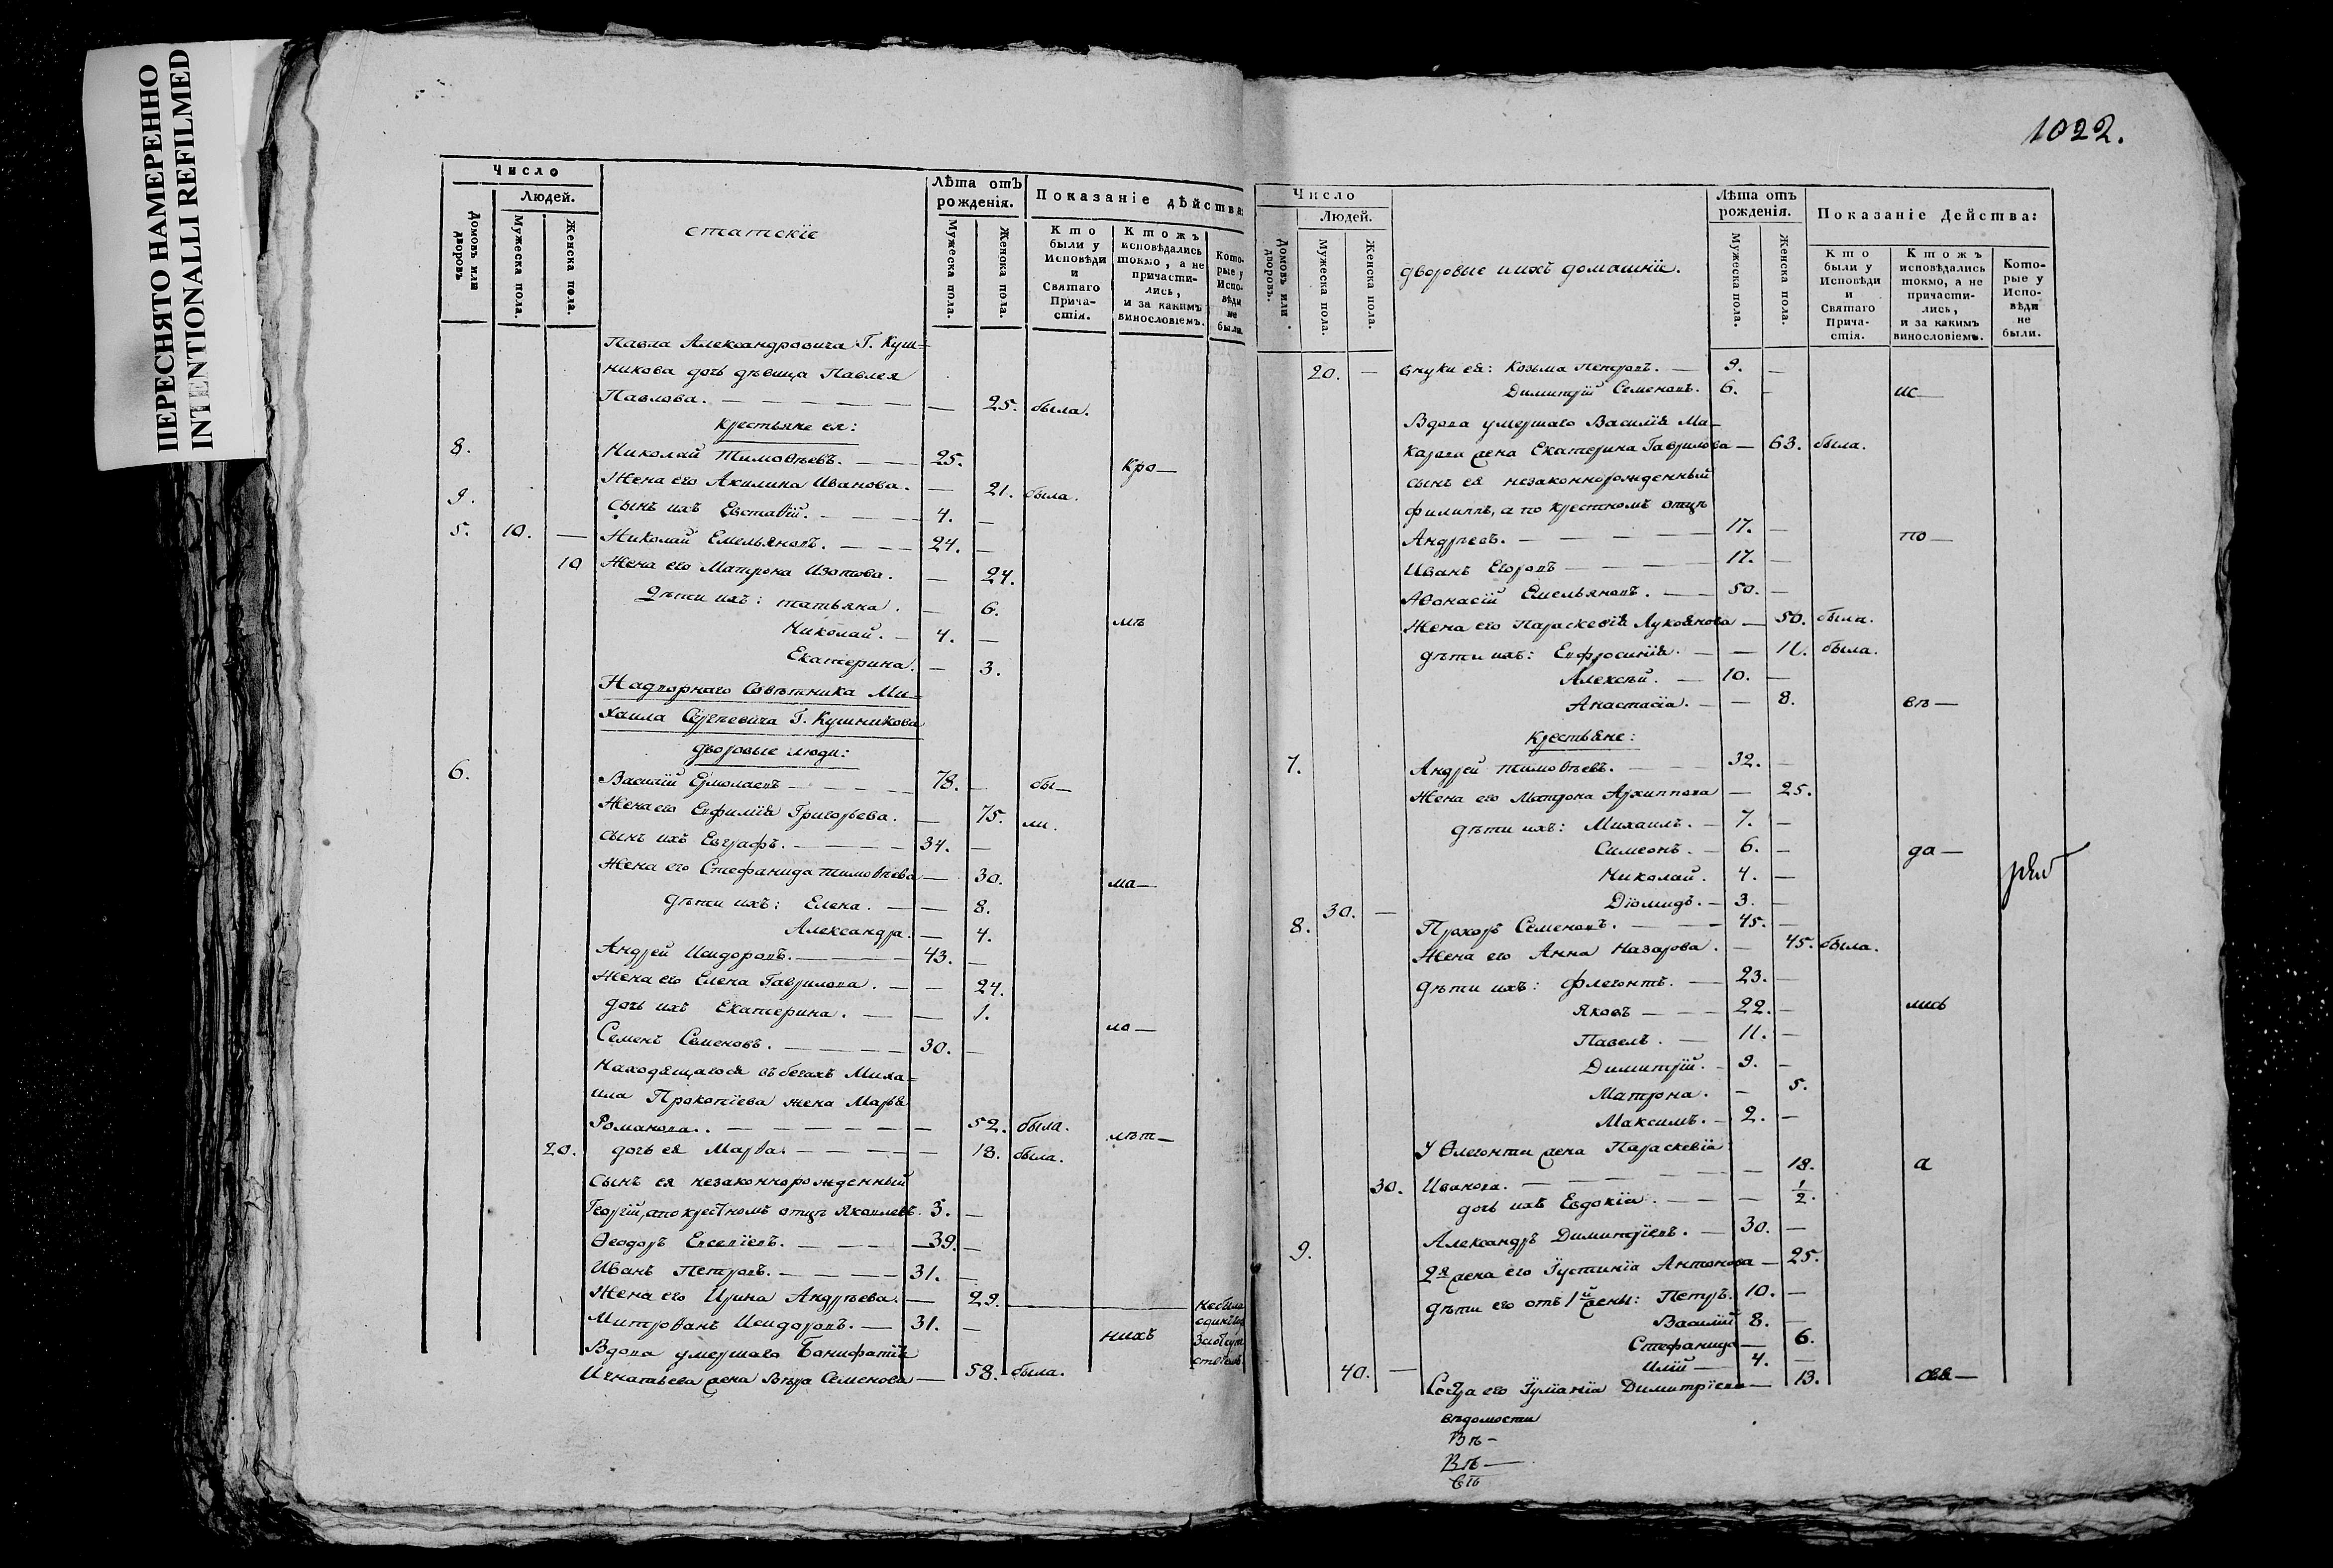 ПЕРЕСНЯТО НАМЕРЕННО
INTENTIONALLI REFILMED
1022.
Число
Людей.
Домовъ или дворовъ
Мужеска пола.
Женска пола.
статскіе
Лѣта отъ рожденія.
Мужеска пола.
Женска пола.
Показаніе дѣйства:
Кто были у Исповѣди и Святаго Прича-стія.
Ктожъ исповѣдались токмо, а не причасти-лись, и за какимъ винословіемъ.
Кото-рые у Испо-вѣди не были.
Павла Александровича Г. Куш=
никова дочь дѣвица Павлея
Павлова. — 25. была.
Крестьяне ея:
8. Николай Тимоѳѣевъ. — 25. кро—
Жена его Акилина Иванова. — 21. была.
9. сынъ ихъ Евстаѳій. — 4. —
5. 10. — Николай Емельяновъ. — 24. —
10 Жена его Матрона Изотова. — 24.
Дѣти ихъ: Татьяна. — 6. мѣ
Николай. — 4. —
Екатерина. — 3.
Надворнаго Совѣтника Ми=
хаила Сергѣевича Г. Кушникова
дворовые люди:
6. Василій Ермолаевъ — 78. — бы—
Жена его Евфимія Григорьева. — 75. ли.
сынъ ихъ Евграфъ. — 34. —
Жена его Стефанида Тимоѳѣева — 30. ма—
дѣти ихъ: Елена. — 8.
Александра. — 4.
Андрей Исидоровъ. — 43. —
Жена его Елена Гаврилова. — 24.
дочь ихъ Екатерина. — 1. ло—
Семенъ Семеновъ. — 30. —
Находящагося въ бегахъ Миха=
ила Прокопіева жена Марья
Романова. — 52. была. лѣт—
20. дочь ея Марѳа. — 18. была.
сынъ ея незаконнорожденный
Георгій, а по крестномъ отцѣ Яковлевъ. 3. —
Ѳеодоръ Евсевіевъ. — 39. —
Иванъ Петровъ. — 31. —
Жена его Ирина Андрѣева. — 29. — небыла
Митрофанъ Исидоровъ. — 31. — нихъ
Вдова умершаго Бонифатія
Игнатьева жена Вѣра Семенова — 58. была.
Число
Людей.
Домовъ или дворовъ.
Мужеска пола.
Женска пола.
дворовые и ихъ домашніе.
Лѣта отъ рожденія.
Мужеска пола.
Женска пола.
Показаніе Действа:
Кто были у Исповѣди и Святаго Прича-стія.
Ктожъ исповѣдались токмо, а не причасти-лись, и за какимъ винословіемъ.
Кото-рые у Испо-вѣди не были.
20. — внуки ея: Козьма Петровъ. — 9. —
Димитрій Семеновъ. 6. — ис—
Вдова умершаго Василія Ма—
карова жена Екатерина Гаврилова — 63. была.
сынъ ея незаконнорожденный
Филиппъ, а по крестномъ отцѣ
Андрѣевъ. — 17. — по—
Иванъ Егоровъ — 17. —
Аѳонасій Емельяновъ. — 50. —
Жена его Параскевія Лукоянова — 50. была.
дѣти ихъ: Евфросинія. — 11. была.
Алексѣй. — 10. —
Анастасія. — 8. вѣ—
Крестьяне:
7. Андрей Тимоѳѣевъ. — 32. —
Жена его Матрона Архиппова — 25.
дѣти ихъ: Михаилъ. — 7. —
Симеонъ. — 6. — да—
Николай. 4. —
30. — Діомидъ. — 3. —
8. Прохоръ Семеновъ. — 45. —
Жена его Анна Назарова. — 45. была.
дѣти ихъ: Флегонтъ. — 23. —
Яковъ — 22. — лись
Павелъ. — 11. —
Димитрій. — 9. —
Матрона. — 5.
Максимъ. — 2. —
У Флегонта жена Параскевія
30. Иванова. — 18. а
дочь ихъ Евдокія. — 1/2.
9. Александръ Димитріевъ. — 30. —
2я жена его Іустинія Антонова — 25.
дѣти его отъ 1й жены: Петръ. 10. —
Василій 8. —
Стефанида — 6.
40. — Илій — 4. —
Сестра его Іуліанія Димитріева — 13.
вѣдомости
Вѣ—
Вѣ—